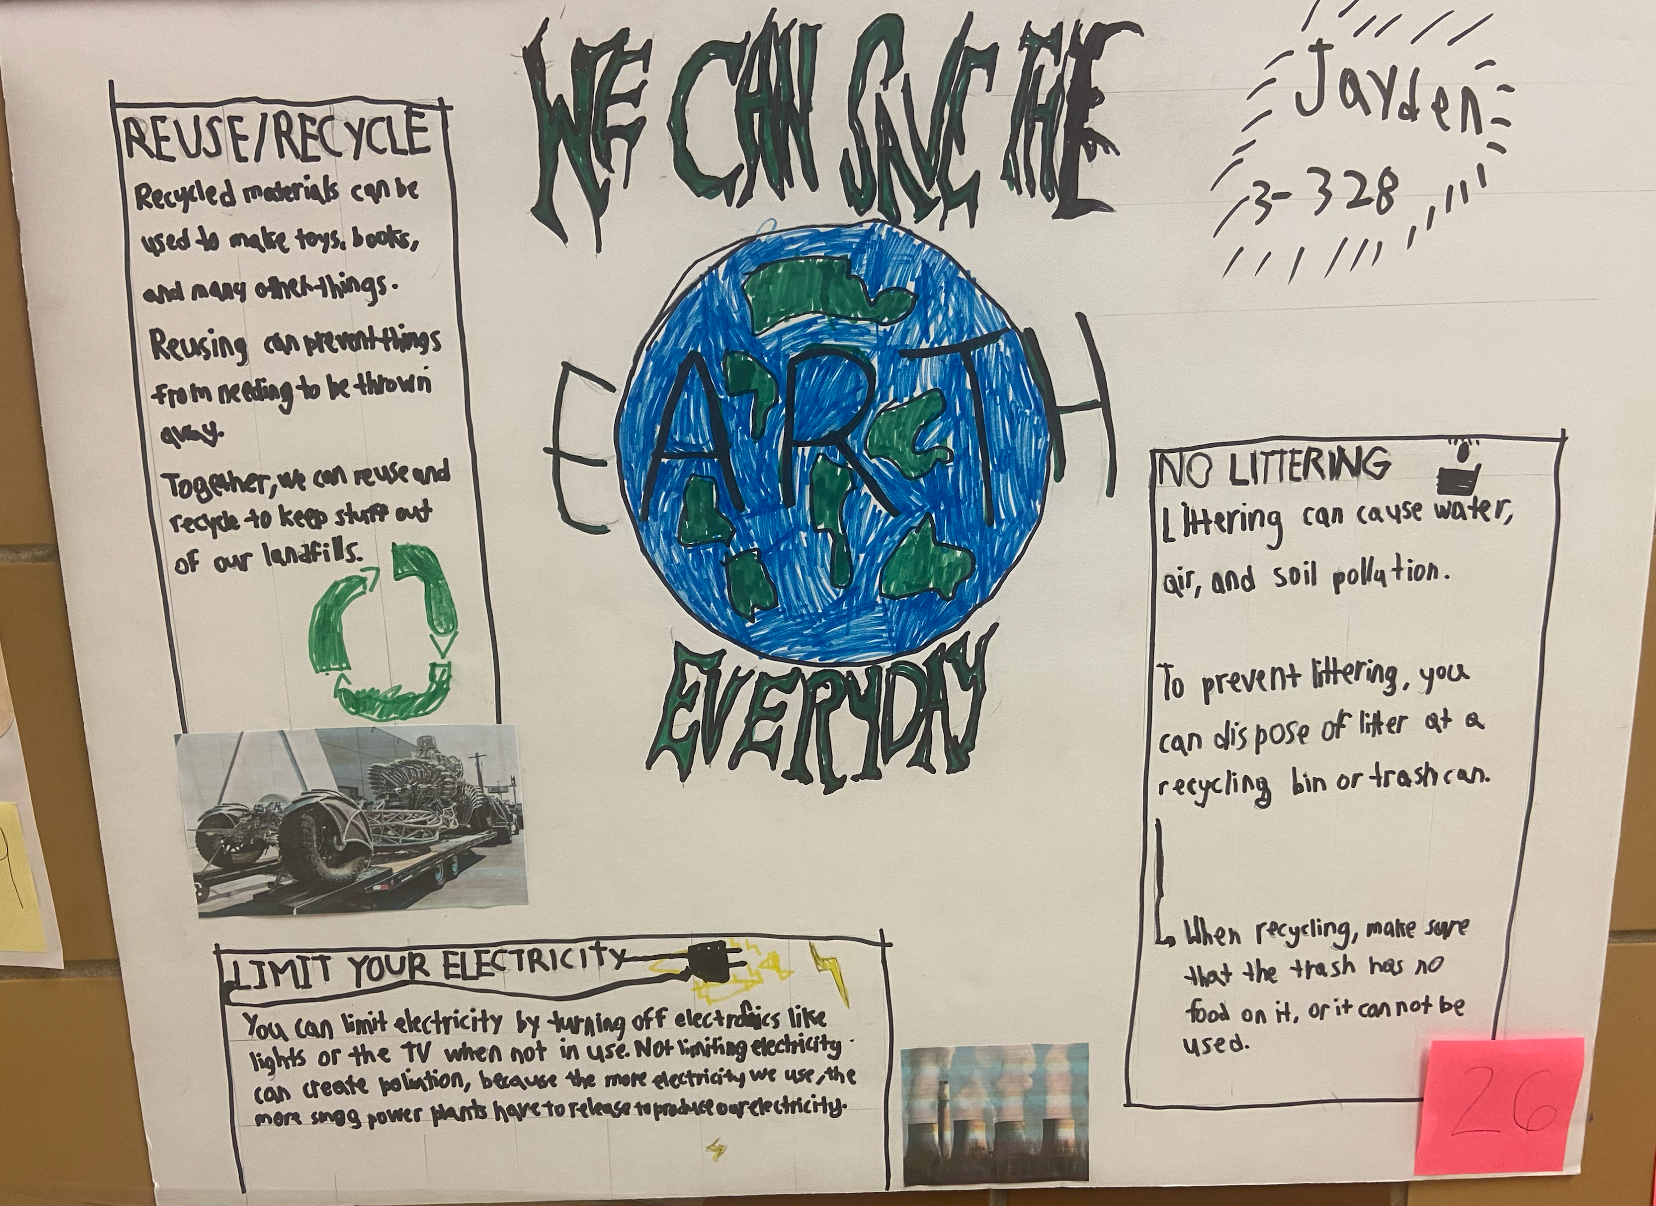 WE CAN SAVE THE
EARTH
EVERYDAY
Jayden
3-328
REUSE/RECYCLE
Recycled materials can be
used to make toys, books,
and many other things.
Reusing can prevent things
from needing to be thrown
away.
Together, we can reuse and
recycle to keep stuff out
of our landfills.
LIMIT YOUR ELECTRICITY
You can limit electricity by turning off electronics like
lights or the TV when not in use. Not limiting electricity
can create pollution, because the more electricity we use, the
more smog power plants have to release to produce our electricity.
NO LITTERING
Littering can cause water,
air, and soil pollution.
To prevent littering, you
can dispose of litter at a
recycling bin or trashcan.
When recycling, make sure
that the trash has no
food on it, or it can not be
used.
26
9